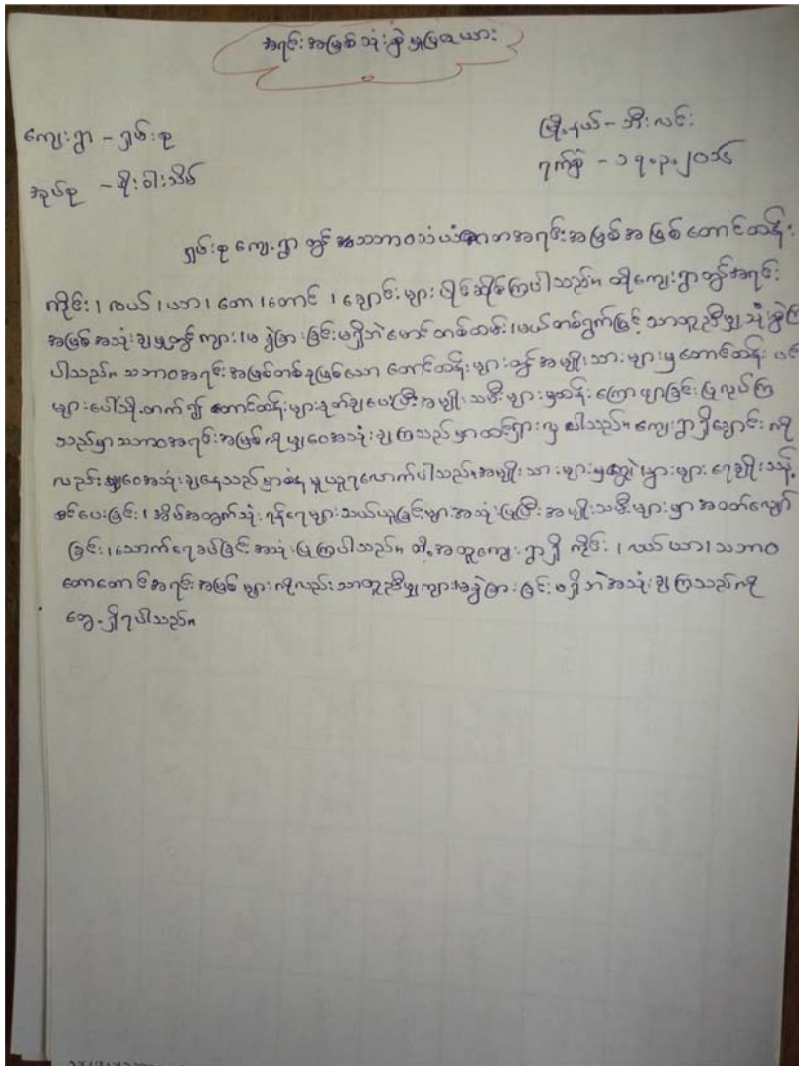 အရင်းအမြစ်သုံးစွဲမှုပြဇယား
ကျေးရွာ - ရှမ်းစု
မြို့နယ် - ဘီးလင်း
အုပ်စု - စိုးဝါးသိမ်
ရက်စွဲ - ၁၇.၃.၂၀၁၆
ရှမ်းစုကျေးရွာတွင် သဘာဝသယံဇာတအရင်းအမြစ်အဖြစ်တောင်ထန်း
ကိုင်း၊ လယ်၊ ယာ၊ တော၊ တောင်၊ ချောင်းများ ပိုင်ဆိုင်ကြပါသည်။ ထိုကျေးရွာတွင်အရင်း
အမြစ်အသုံးချမှုတွင် ကျား၊ မ ခွဲခြားခြင်းမရှိဘဲမောင်တစ်ထမ်း၊ မယ်တစ်ရွက်ဖြင့် သာတူညီမျှသုံးစွဲကြ
ပါသည်။ သဘာဝအရင်းအမြစ်တစ်ခုဖြစ်သော တောင်ထန်းများတွင်အမျိုးသားများမှတောင်ထန်း ပင်
များပေါ်သို့တက်၍ တောင်ထန်းများခုတ်ချပေးပြီးအမျိုးသမီးများမှထန်းကြော ဖျာခြင်းပြုလုပ်ကြ
သည်မှာသဘာဝအရင်းအမြစ်ကိုမျှဝေအသုံးချကြသည်မှာထင်ရှားလှပါသည်။ ကျေးရွာရှိချောင်းကို
လည်းမျှဝေအသုံးချနေသည်မှာစံနမူယူရလောက်ပါသည်။ အမျိုးသားများမှကျွဲ၊ နွားများ ရေချိုးသန့်
စင်ပေးခြင်း၊ အိမ်အတွက်သုံးရန်ရေများသယ်ယူခြင်းများအသုံးပြုပြီးအမျိုးသမီးများမှာအဝတ်လျှော်
ခြင်း၊ သောက်ရေခပ်ခြင်းအသုံးပြုကြပါသည်။ ထို့အတူကျေးရွာရှိ ကိုင်း၊ လယ်ယာ၊ သဘာဝ
တောတောင်အရင်းအမြစ်များကိုလည်းသာတူညီမျှကျား၊ မခွဲခြားခြင်းမရှိဘဲအသုံးချကြသည်ကို
တွေ့ရှိရပါသည်။